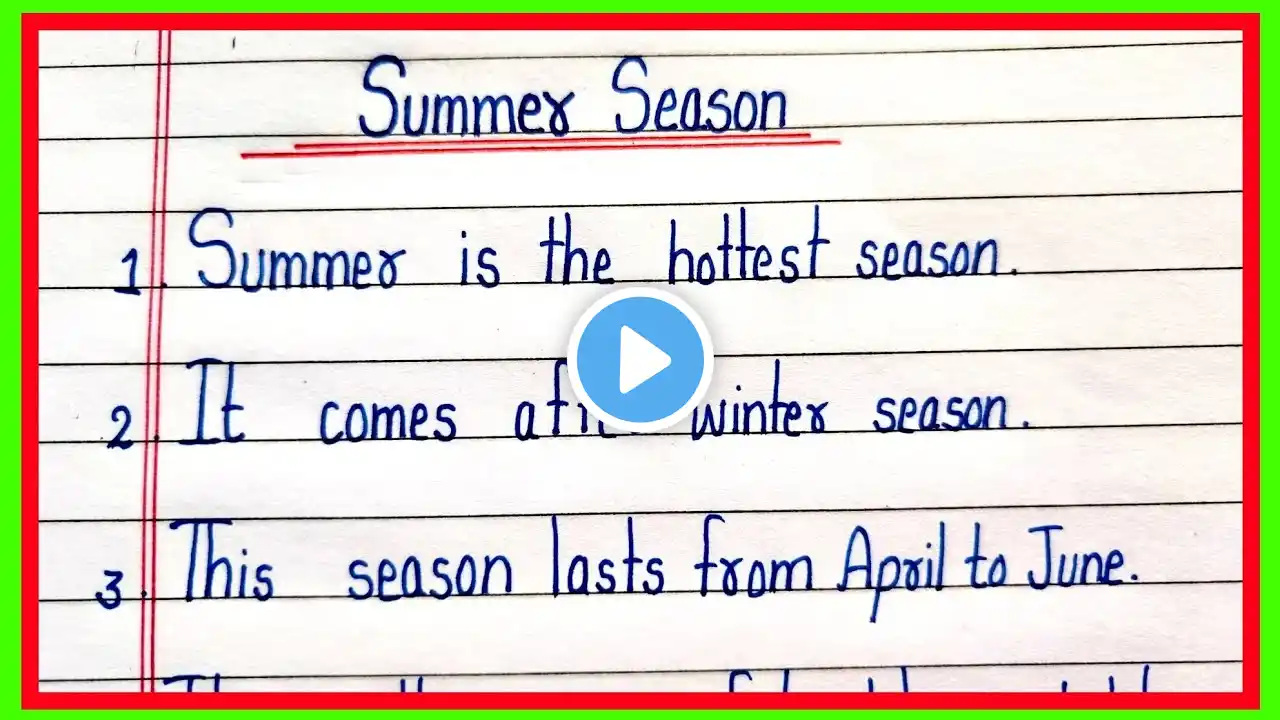 Summer Season
1. Summer is the hottest season.
2. It comes after winter season.
3. This season lasts from April to June.